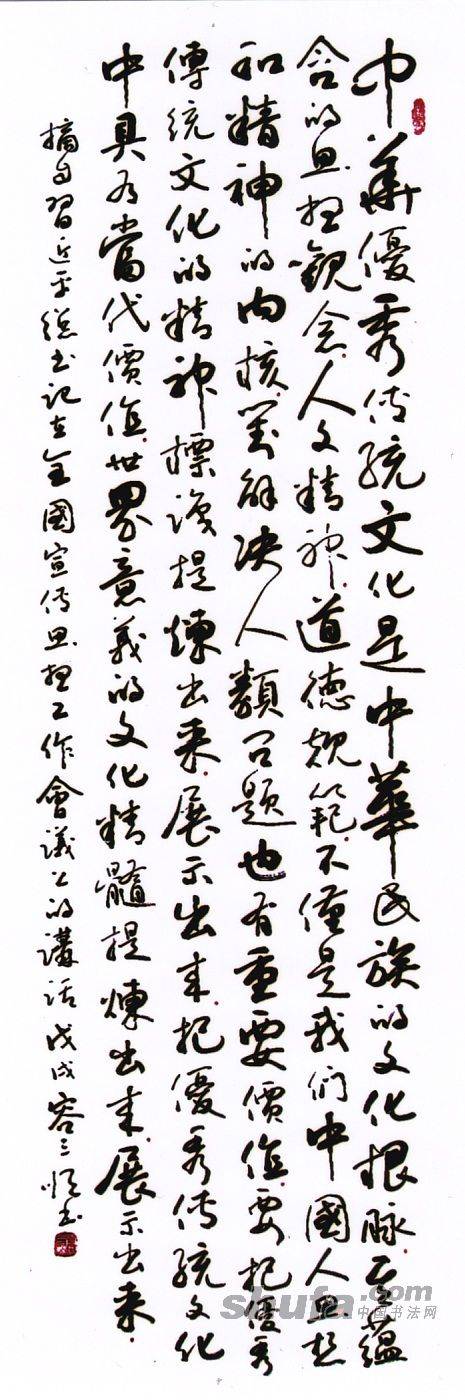 中華優秀传統文化是中華民族的文化根脉.其蕴
含的思想觀念.人文精神.道德規範.不僅是我們中國人思想
和精神的内核.對解决人類问題也有重要價值.要把優秀
傳統文化的精神標識提煉出來.展示出来.把優秀传統文化
中具有當代價值.世界意義的文化精髓提煉出来.展示出來.
摘自習近平總书記在全國宣传思想工作會議上的講話 戊戌 容三书
shufa.com
中国书法网